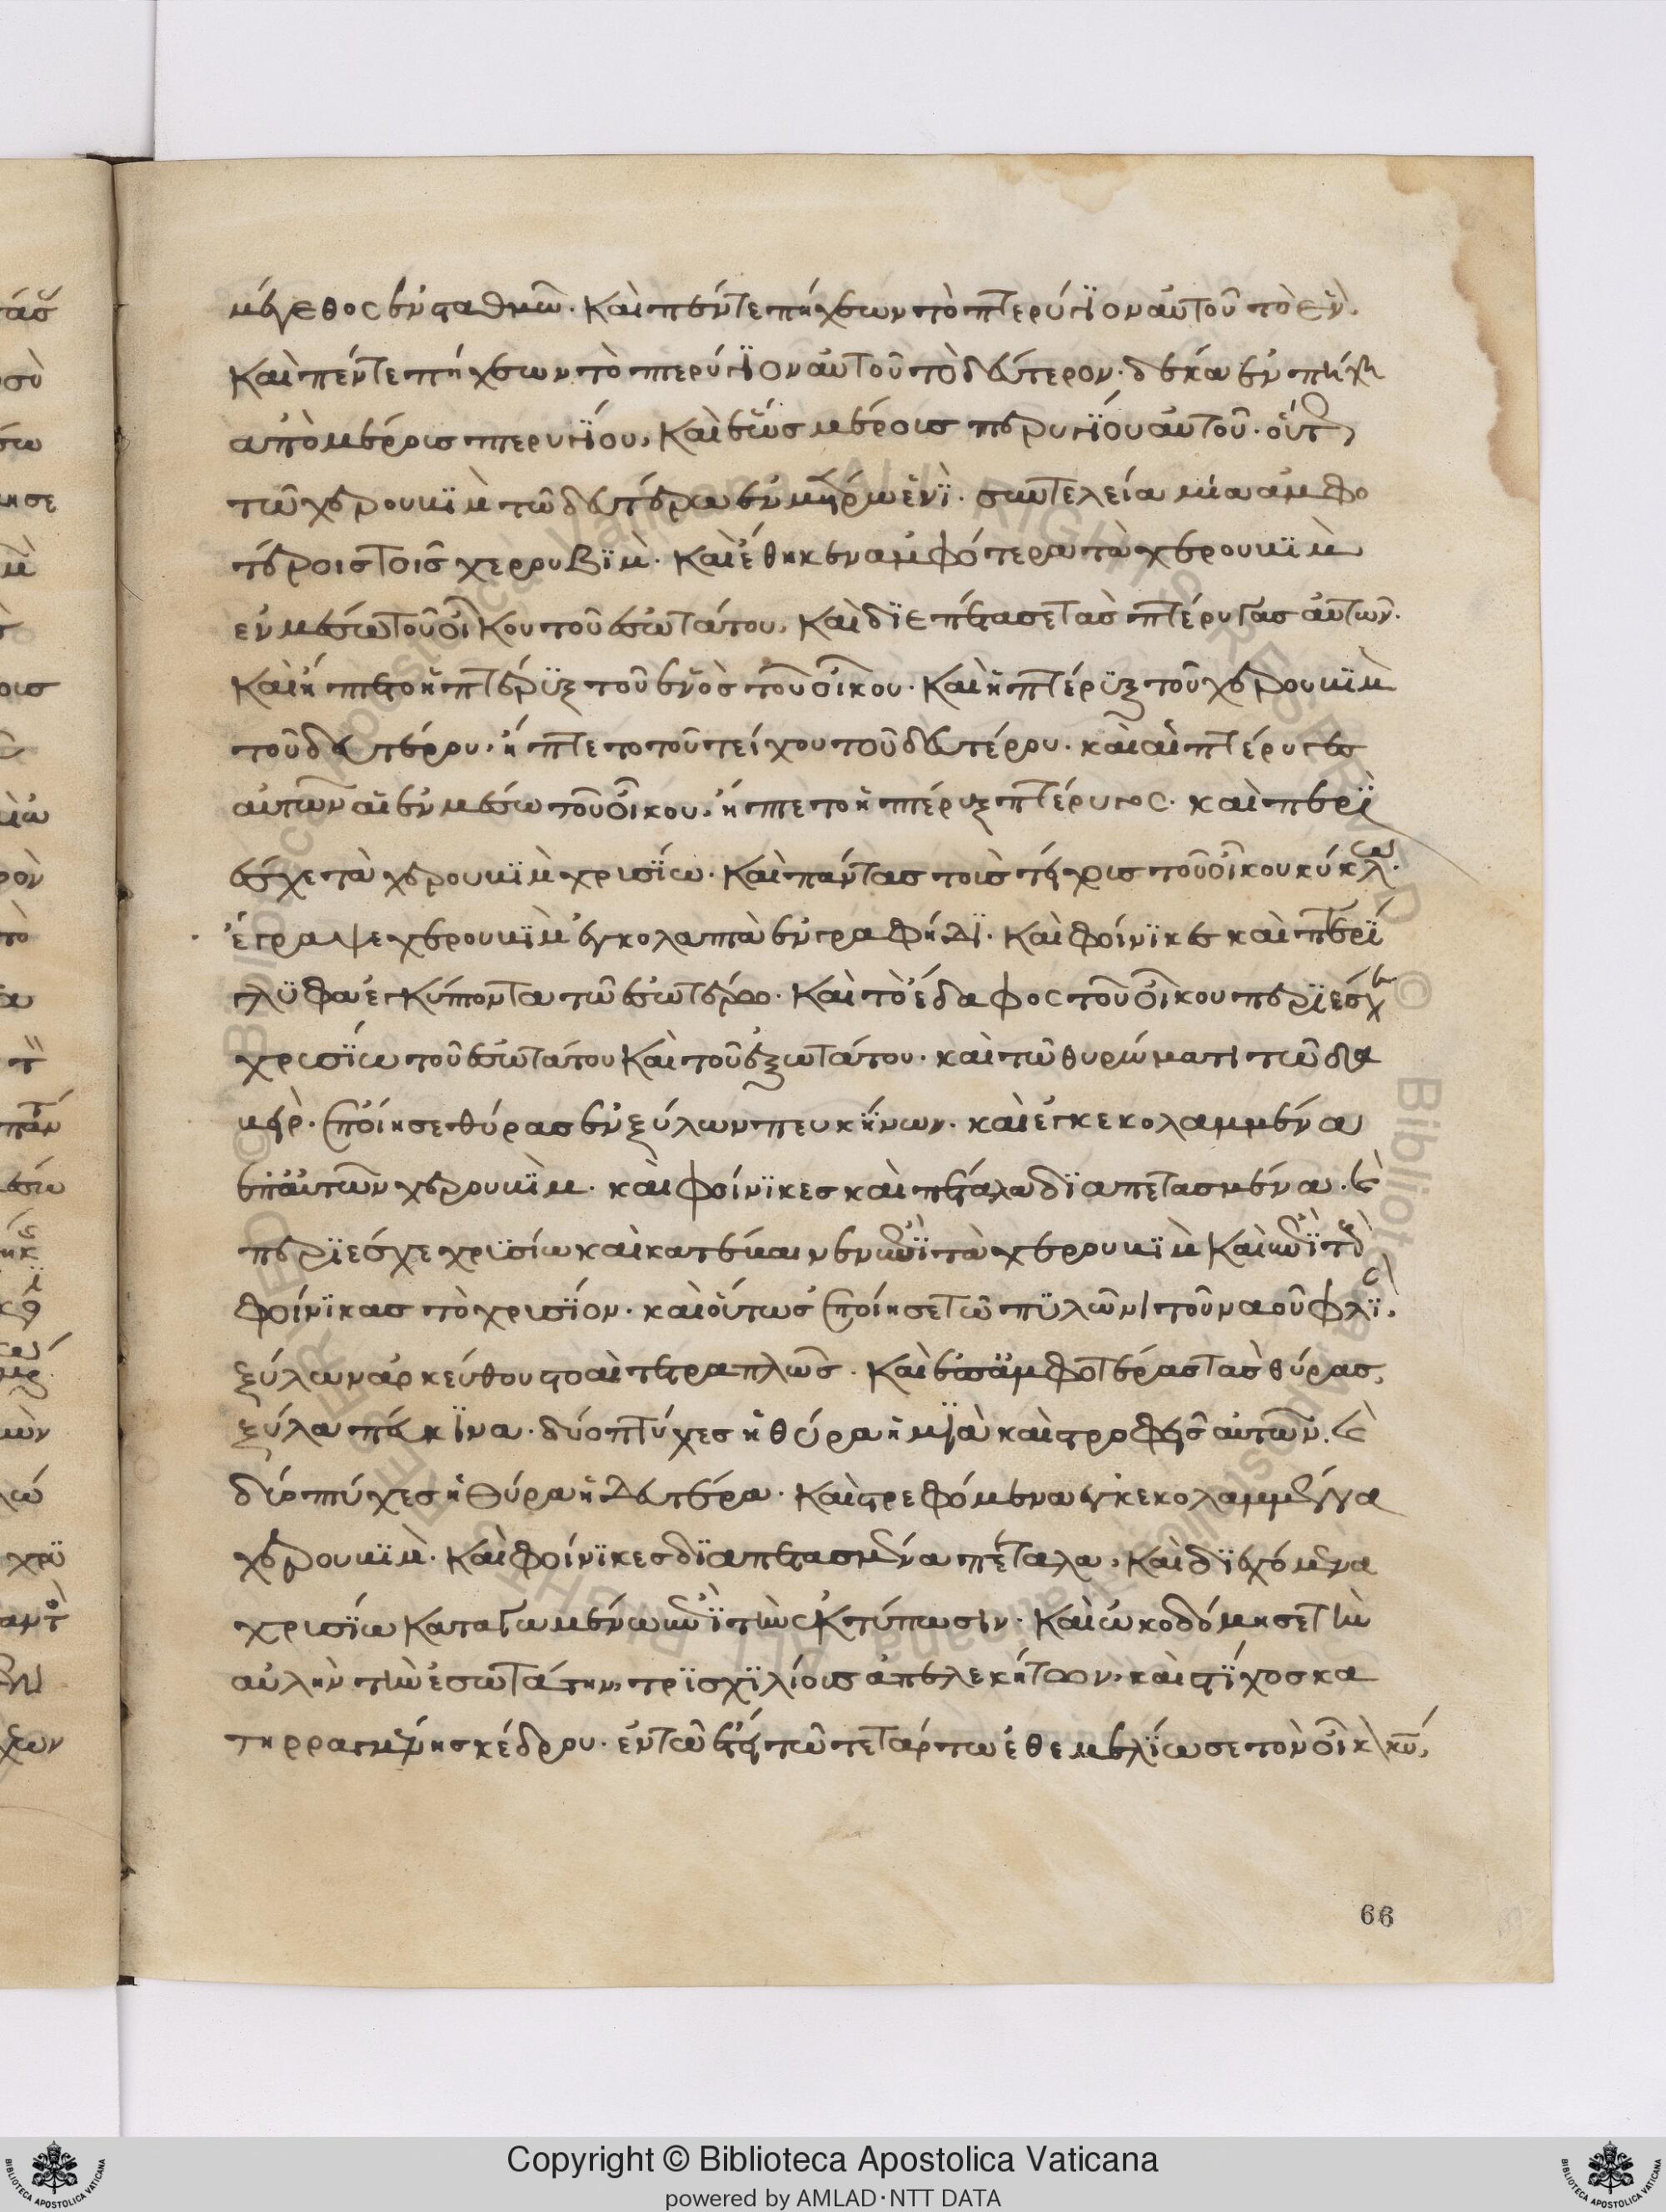 μέγεθος ἐν σταθμῶ. Καὶ πέντε πήχεων τὸ πτερύγϊον αὐτοῦ τὸ ἓν,
Καὶ πέντε πήχεων τὸ πτερύγϊον αὐτοῦ τὸ δεύτερον. δέκα ἐν πήχει
ἀπὸ μέρους πτερυγϊου, Καὶ ἕως μέρους πτερυγϊου αὐτοῦ. οὕτω
τῶ χερουβϊμ τῶ δευτέρω ἐν μέτρω ἑνϊ. συντελεία μία ἀμφο
τέροις τοῖς χερουβϊμ. Καὶ ἔθηκεν ἀμφότερα τὰ χερουβϊμ
ἐν μέσω τοῦ οἴκου τοῦ ἐσωτάτου, Καὶ διεπέτασε τὰς πτέρυγας αὐτῶν.
Καὶ ἥπτετο ἡ πτέρϋξ τοῦ ἑνὸς τοῦ οἴκου. Καὶ ἡ πτέρϋξ τοῦ χερουβϊμ
τοῦ δευτέρου, ἥπτετο τοῦ τείχου τοῦ δευτέρου. καὶ αἱ πτέρυγες
αὐτῶν αἱ ἐν μέσω τοῦ οἴκου, ἥπτετο ἡ πτέρυξ πτέρυγος. καὶ περϊ
έσχε τὰ χερουβϊμ χρυσϊω. Καὶ πάντας τοὺς τείχους τοῦ οἴκου κύκλω.
ἔγραψε χερουβϊμ ἐγκολαπτὰ ἐν γραφίδϊ. Καὶ φοίνϊκες καὶ περϊ
γλϋφα ἐγκύπτοντα τῶ ἐσωτέρω. Καὶ τὸ ἔδαφος τοῦ οἴκου περϊέσχε
χρυσϊω τοῦ ἐσωτάτου Καὶ τοῦ ἐξωτάτου. καὶ τῶ θυρώματι τῶ δα
βεὶρ. ἐποίησε θύρας ἐν ξύλων πευκϊνων. καὶ ἐγκεκολαμμένα
ἐπ' αὐτῶν χερουβϊμ. καὶ φοίνϊκες καὶ πέταλα διαπετασμένα. καὶ
περϊέσχε χρϋσίω καὶ κατέβαινεν ἐπϊ τὰ χερουβϊμ Καὶ ἐπϊ τοὺς
φοίνϊκας τὸ χρυσϊον. καὶ οὕτως ἐποίησε τῶ πϋλῶνι τοῦ ναοῦ φλϊ,
ξύλων ἀρκεύθου στοαὶ τετραπλῶς. Καὶ ἐπ' ἀμφοτέρας τὰς θύρας,
ξύλα πεύκϊνα. δύο πτύχες ἡ θύρα ἡ μϊα καὶ στροφεῖς αὐτῶν. καὶ
δύο πτύχες ἡ θύρα ἡ δευτέρα. Καὶ στρεφόμενα ἐγκεκολαμμένα
χερουβϊμ. Καὶ φοίνϊκες δϊαπετασμένα πέταλα, Καὶ διεχόμενα
χρυσϊω καταγωμένω ἐπϊ τὴν ἐκτύπωσιν. Καὶ ὠκοδόμησε τὴν
αὐλὴν τὴν ἐσωτάτην, τρϊσχϊλίους ἀπελεκήτων, καὶ στϊχος κα
τηρραγμένης κέδρου. ἐν τῶ ἔτει τῶ τετάρτω ἐθεμελϊωσε τὸν οἶκον κυ,
66
Copyright © Biblioteca Apostolica Vaticana
powered by AMLAD·NTT DATA